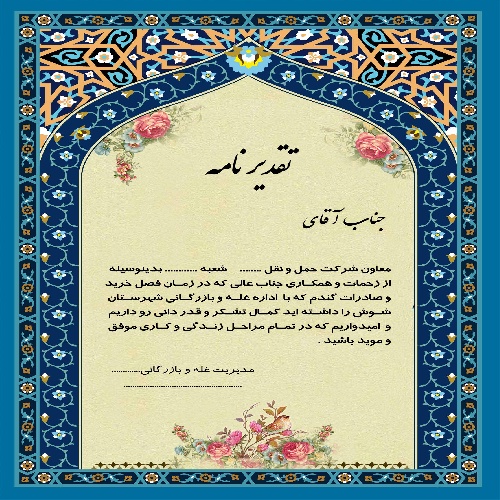 تقدیر نامه
جناب آقای
معاون شرکت حمل و نقل ........ شعبه ............ بدینوسیله
از زحمات و همکاری جناب عالی که در زمان فصل خرید
و صادرات گندم که با اداره غله و بازرگانی شهرستان
شوش را داشته اید کمال تشکر و قدر دانی رو داریم
و امیدواریم که در تمام مراحل زندگی و کاری موفق
و موید باشید .
مدیریت غله و بازرگانی............
................................................